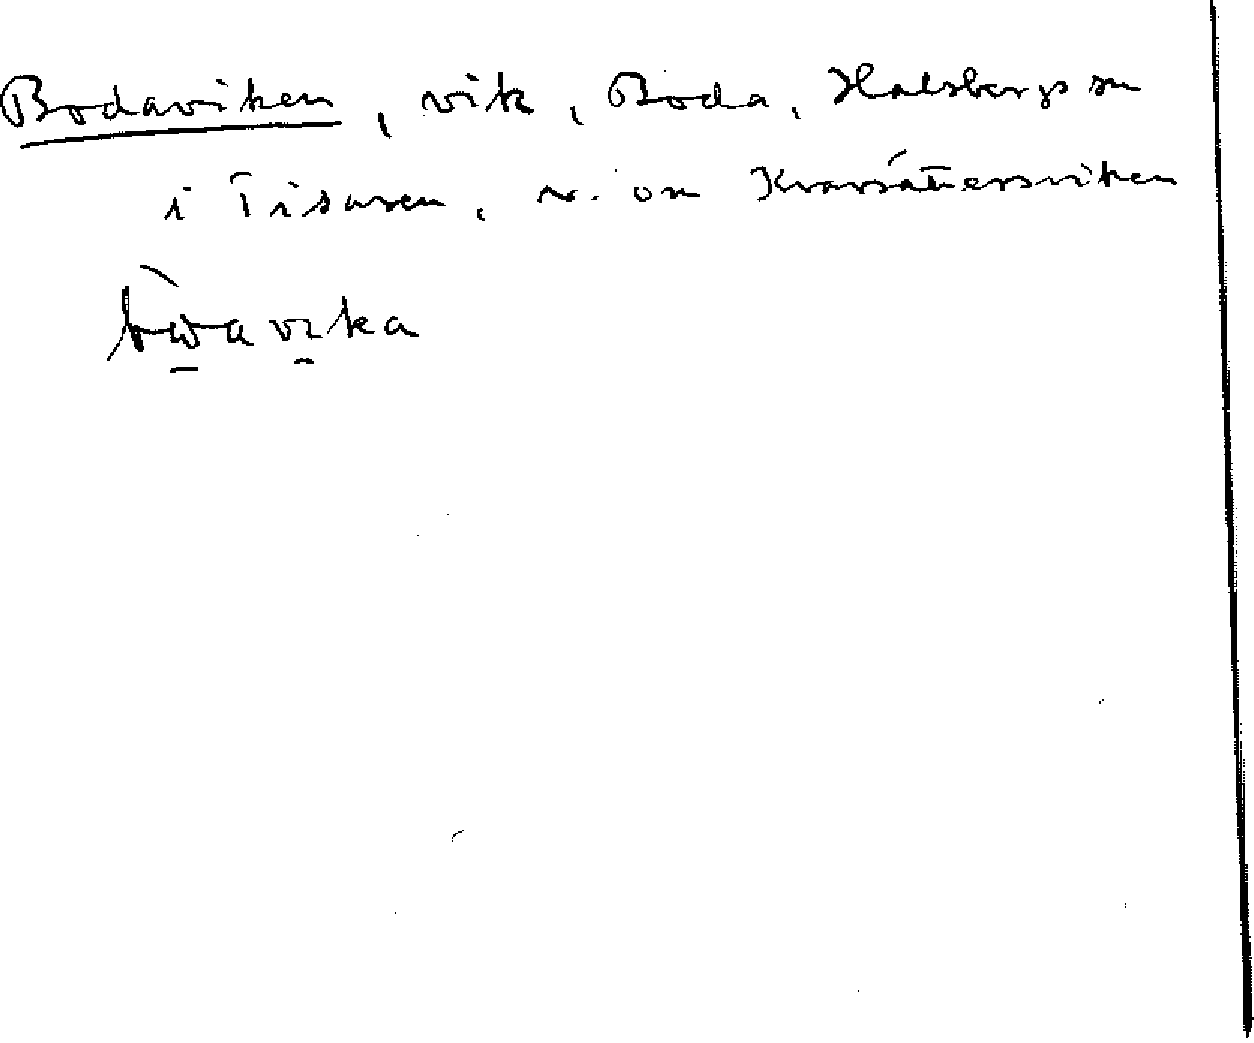 Bodaviken, vik, Boda, Halsbergs sn
i Tisaren, v. om Kvarsätersviken